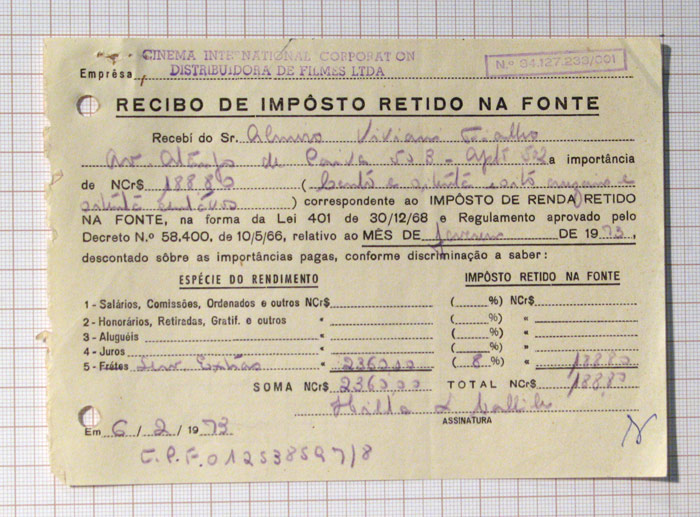 CINEMA INTERNATIONAL CORPORATION
DISTRIBUIDORA DE FILMES LTDA
N.º 34.127.233/001
Emprêsa
RECIBO DE IMPÔSTO RETIDO NA FONTE
Recebí do Sr. Viviano
Av. de Paiva 50 - Apto 502 a importância
de NCr$ 188,80 ( cento e oitenta e oito cruzeiros e
oitenta centavos ) correspondente ao IMPÔSTO DE RENDA RETIDO
NA FONTE, na forma da Lei 401 de 30/12/68 e Regulamento aprovado pelo
Decreto N.º 58.400, de 10/5/66, relativo ao MÊS DE Janeiro DE 1973,
descontado sôbre as importâncias pagas, conforme discriminação a saber:
ESPÉCIE DO RENDIMENTO IMPÔSTO RETIDO NA FONTE
1 - Salários, Comissões, Ordenados e outros NCr$ ( %) NCr$
2 - Honorários, Retiradas, Gratif. e outros « ( %) «
3 - Aluguéis « ( %) «
4 - Juros « ( %) «
5 - Frétes Serv. Extras « 2360,00 ( 8 %) « 188,80
SOMA NCr$ 2360,00 TOTAL NCr$ 188,80
ASSINATURA
Em 6 / 2 / 1973
C.P.F. 012538597/8